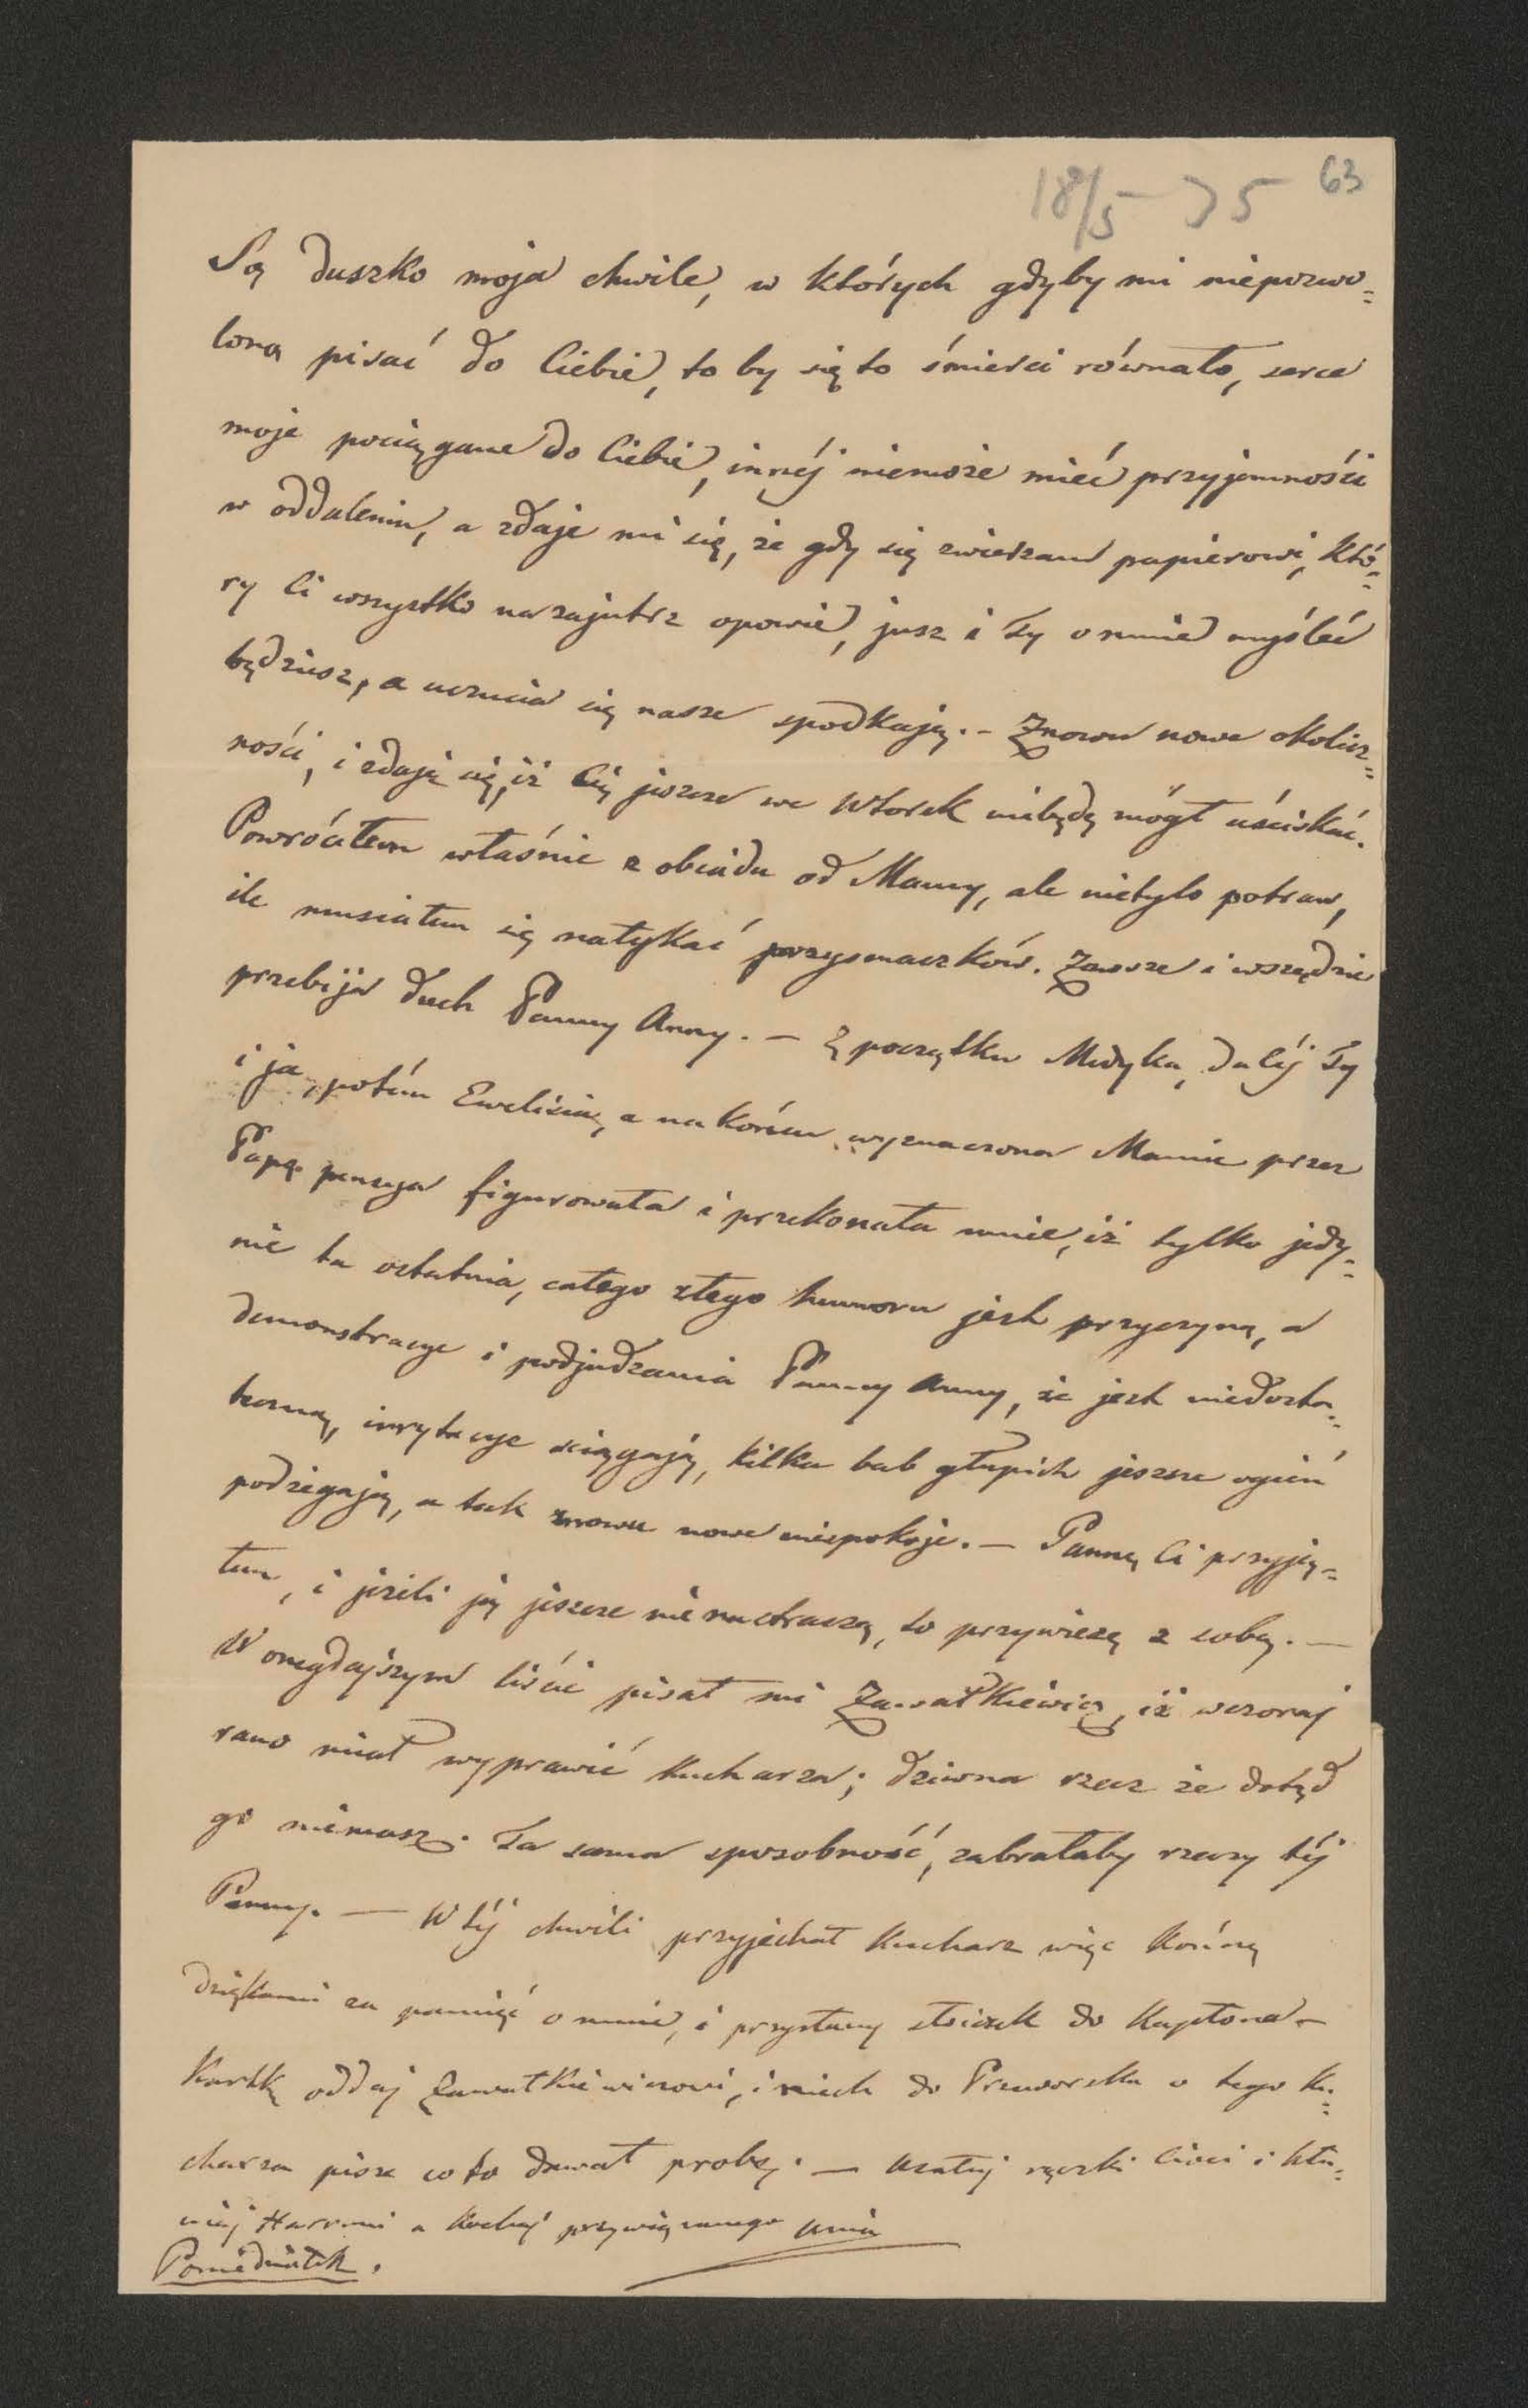 18/5 35 63
Są duszko moja chwile, w których gdyby mi niepozwo=
lono pisać do Ciebie, to by się to śmierci równało, serce
moje pociągane do Ciebie, innéj niemoże mieć przyjemności
w oddaleniu, a zdaje mi się, że gdy się zwierzam papierowi, któ=
ry Ci wszystko nazajutrz opowie, jusz i Ty o mnie myśleć
będziesz, a uczucia się nasze spodkają. – Znowu nowe okolicz=
ności, i zdaje się, iż Cię jeszcze we Wtorek niebędę mógł uściskać.
Powróciłem właśnie z obiadu od Mamy, ale nietylo potraw,
ile musiałem się natykać przysmaczków. Zawsze i wszędzie
przebija duch Panny Anny. – Z początku Medyka, daléj Ty
i ja, potém Ewelisia, a na końcu wyznaczona Mamie przez
Papę pensya figurowała i przekonała mnie, iż tylko jedy=
nie ta ostatnia, całego złego humoru jest przyczyną, a
demonstracye i podjudzania Panny Anny, że jest niedosta=
teczną, irrytacye sciągają, kilka bab głupich jeszcze ogień
podżegają, a tak znowu nowe niepokoje. – Pannę Ci przyją=
łem, i jeżeli ją jeszcze nie nastraszą, to przywiezę z sobą. –
W onegdajszym liście pisał mi Zawałkiewicz, iż wczoraj
rano miał wyprawić kucharza; dziwna rzecz że dotąd
go niemasz. Ta sama sposobność, zabrałaby rzeczy téj
Panny. – W téj chwili przyjechał Kucharz więc kończę
dziękami za pamięć o mnie, i przysłany słoiczek do Kapłona –
Kartkę oddaj Zawałkiewiczowi, i niech do Przeworska o tego ku=
charza pisze co to dawał probę. – Ucałuj rączki Cioci i kła=
niaj a kochaj przywiązanego
Poniedziałek.